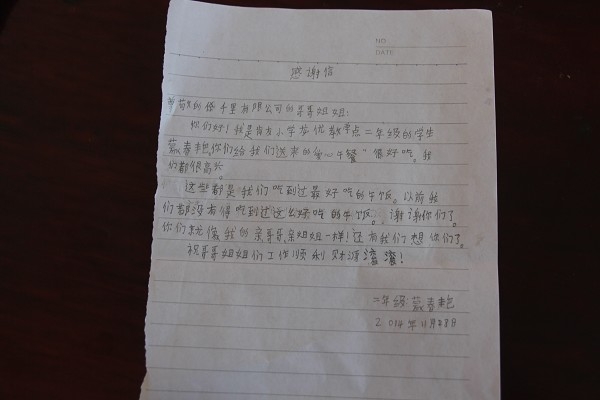 NO.
DATE
感谢信
的保千里有限公司的哥哥姐姐:
你们好!我是小学教学点二年级的学生
春艳,你们给我们送来的“爱心午餐”很好吃。我
们都很高兴。
这些都是我们吃到过最好吃的午饭。以前我
们都没有得吃到过这么好吃的午饭。谢谢你们了。
你们就像我的亲哥哥亲姐姐一样!还有我们想你们了。
祝哥哥姐姐们工作顺利财源滚滚!
二年级:春艳
2014年11月28日